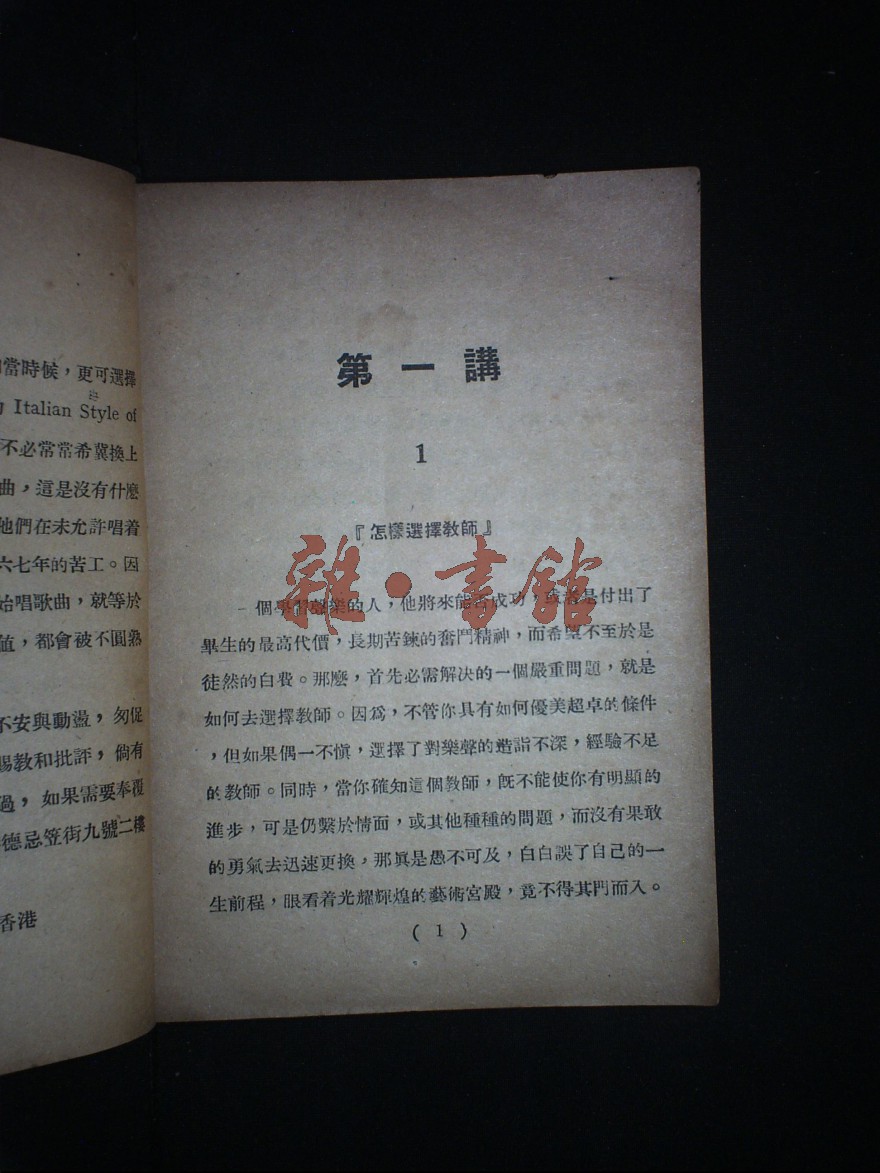 當時候，更可選擇
Italian Style of
不必常常希冀換上
曲，這是沒有什麽
他們在未允許唱着
六七年的苦工。因
始唱歌曲，就等於
值，都會被不圓熟
不安與動盪，匆促
賜教和批評，倘有
過，如果需要奉覆
德忌笠街九號二樓
香港
第一講
1
『怎樣選擇教師』
一個學習聲樂的人，他將來能否成功，或者是付出了
畢生的最高代價，長期苦鍊的奮鬥精神，而希望不至於是
徒然的白費。那麽，首先必需解決的一個嚴重問題，就是
如何去選擇教師。因爲，不管你具有如何優美超卓的條件
，但如果偶一不愼，選擇了對樂聲的造詣不深，經驗不足
的教師。同時，當你確知這個教師，旣不能使你有明顯的
進步，可是仍繫於情面，或其他種種的問題，而沒有果敢
的勇氣去迅速更換，那眞是愚不可及，白白誤了自己的一
生前程，眼看着光耀輝煌的藝術宮殿，竟不得其門而入。
(1)
雜·書館